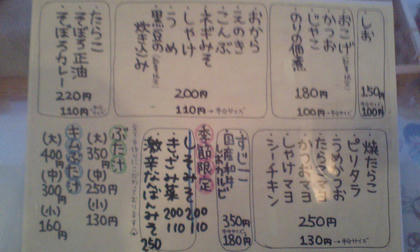 ・しお 150円
・おこげ
・じゃこ
・かつお
・のりの佃煮
180円
100円→半分サイズ
・おから
・えのき
・こんぶ
・ネギみそ
・しゃけ
・うめ
・黒豆の炊きこみ
200円
110円→半分サイズ
・たらこ
・そぼろ正油
・そぼろカレー
220円
110円
・焼たらこ
・ピリタラ
・うめかつお
・たらこマヨ
・かつおマヨ
・しゃけマヨ
・シーチキン
250円
130円→半分サイズ
・すじこ
・国産和牛しおカルビ
350円
180円
季節限定
・しそみそ 200 110
・きざみ菜 200 110
・激辛なんばんみそ 250
ぶた汁
(大)350円
(中)250円
(小)130円
キムぶた汁
(大)400円
(中)300円
(小)160円